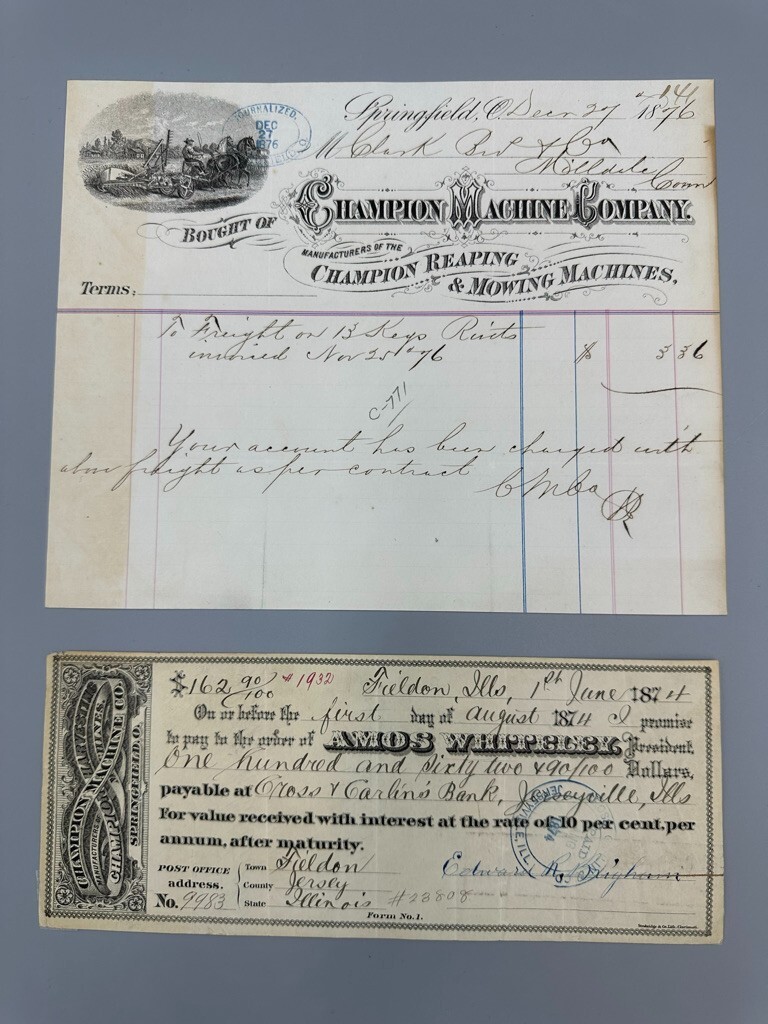 141
Springfield, O. Decr 27 1876
JOURNALIZED.
DEC
27
1876
M Clark Bro & Co
Milldale Conn
BOUGHT OF CHAMPION MACHINE COMPANY.
MANUFACTURERS OF THE
CHAMPION REAPING
& MOWING MACHINES,
Terms:
To Freight on 13 Kegs Rivets
invoiced Nov 25 " 76 $ 3 36
C-771
Your account has been charged with
above freight as per contract
C M Co
$162 90/100 #1932 Fieldon, Ills, 1st June 1874
On or before the first day of August 1874 I promise
to pay to the order of AMOS WHITELEY, President
One hundred and sixty two & 90/100 Dollars,
payable at Cross & Carlin's Bank, Jerseyville, Ills
For value received with interest at the rate of 10 per cent. per
annum, after maturity.
POST OFFICE address.
Town Fieldon
County Jersey
State Illinois #23808
No. 9983
Edward R. Brigham
Form No. 1.
CHAMPION MACHINE CO.
MANUFACTURERS
CHAMPION HARVESTING MACHINES,
SPRINGFIELD, O.
PAID
1874
JERSEYVILLE, ILL.